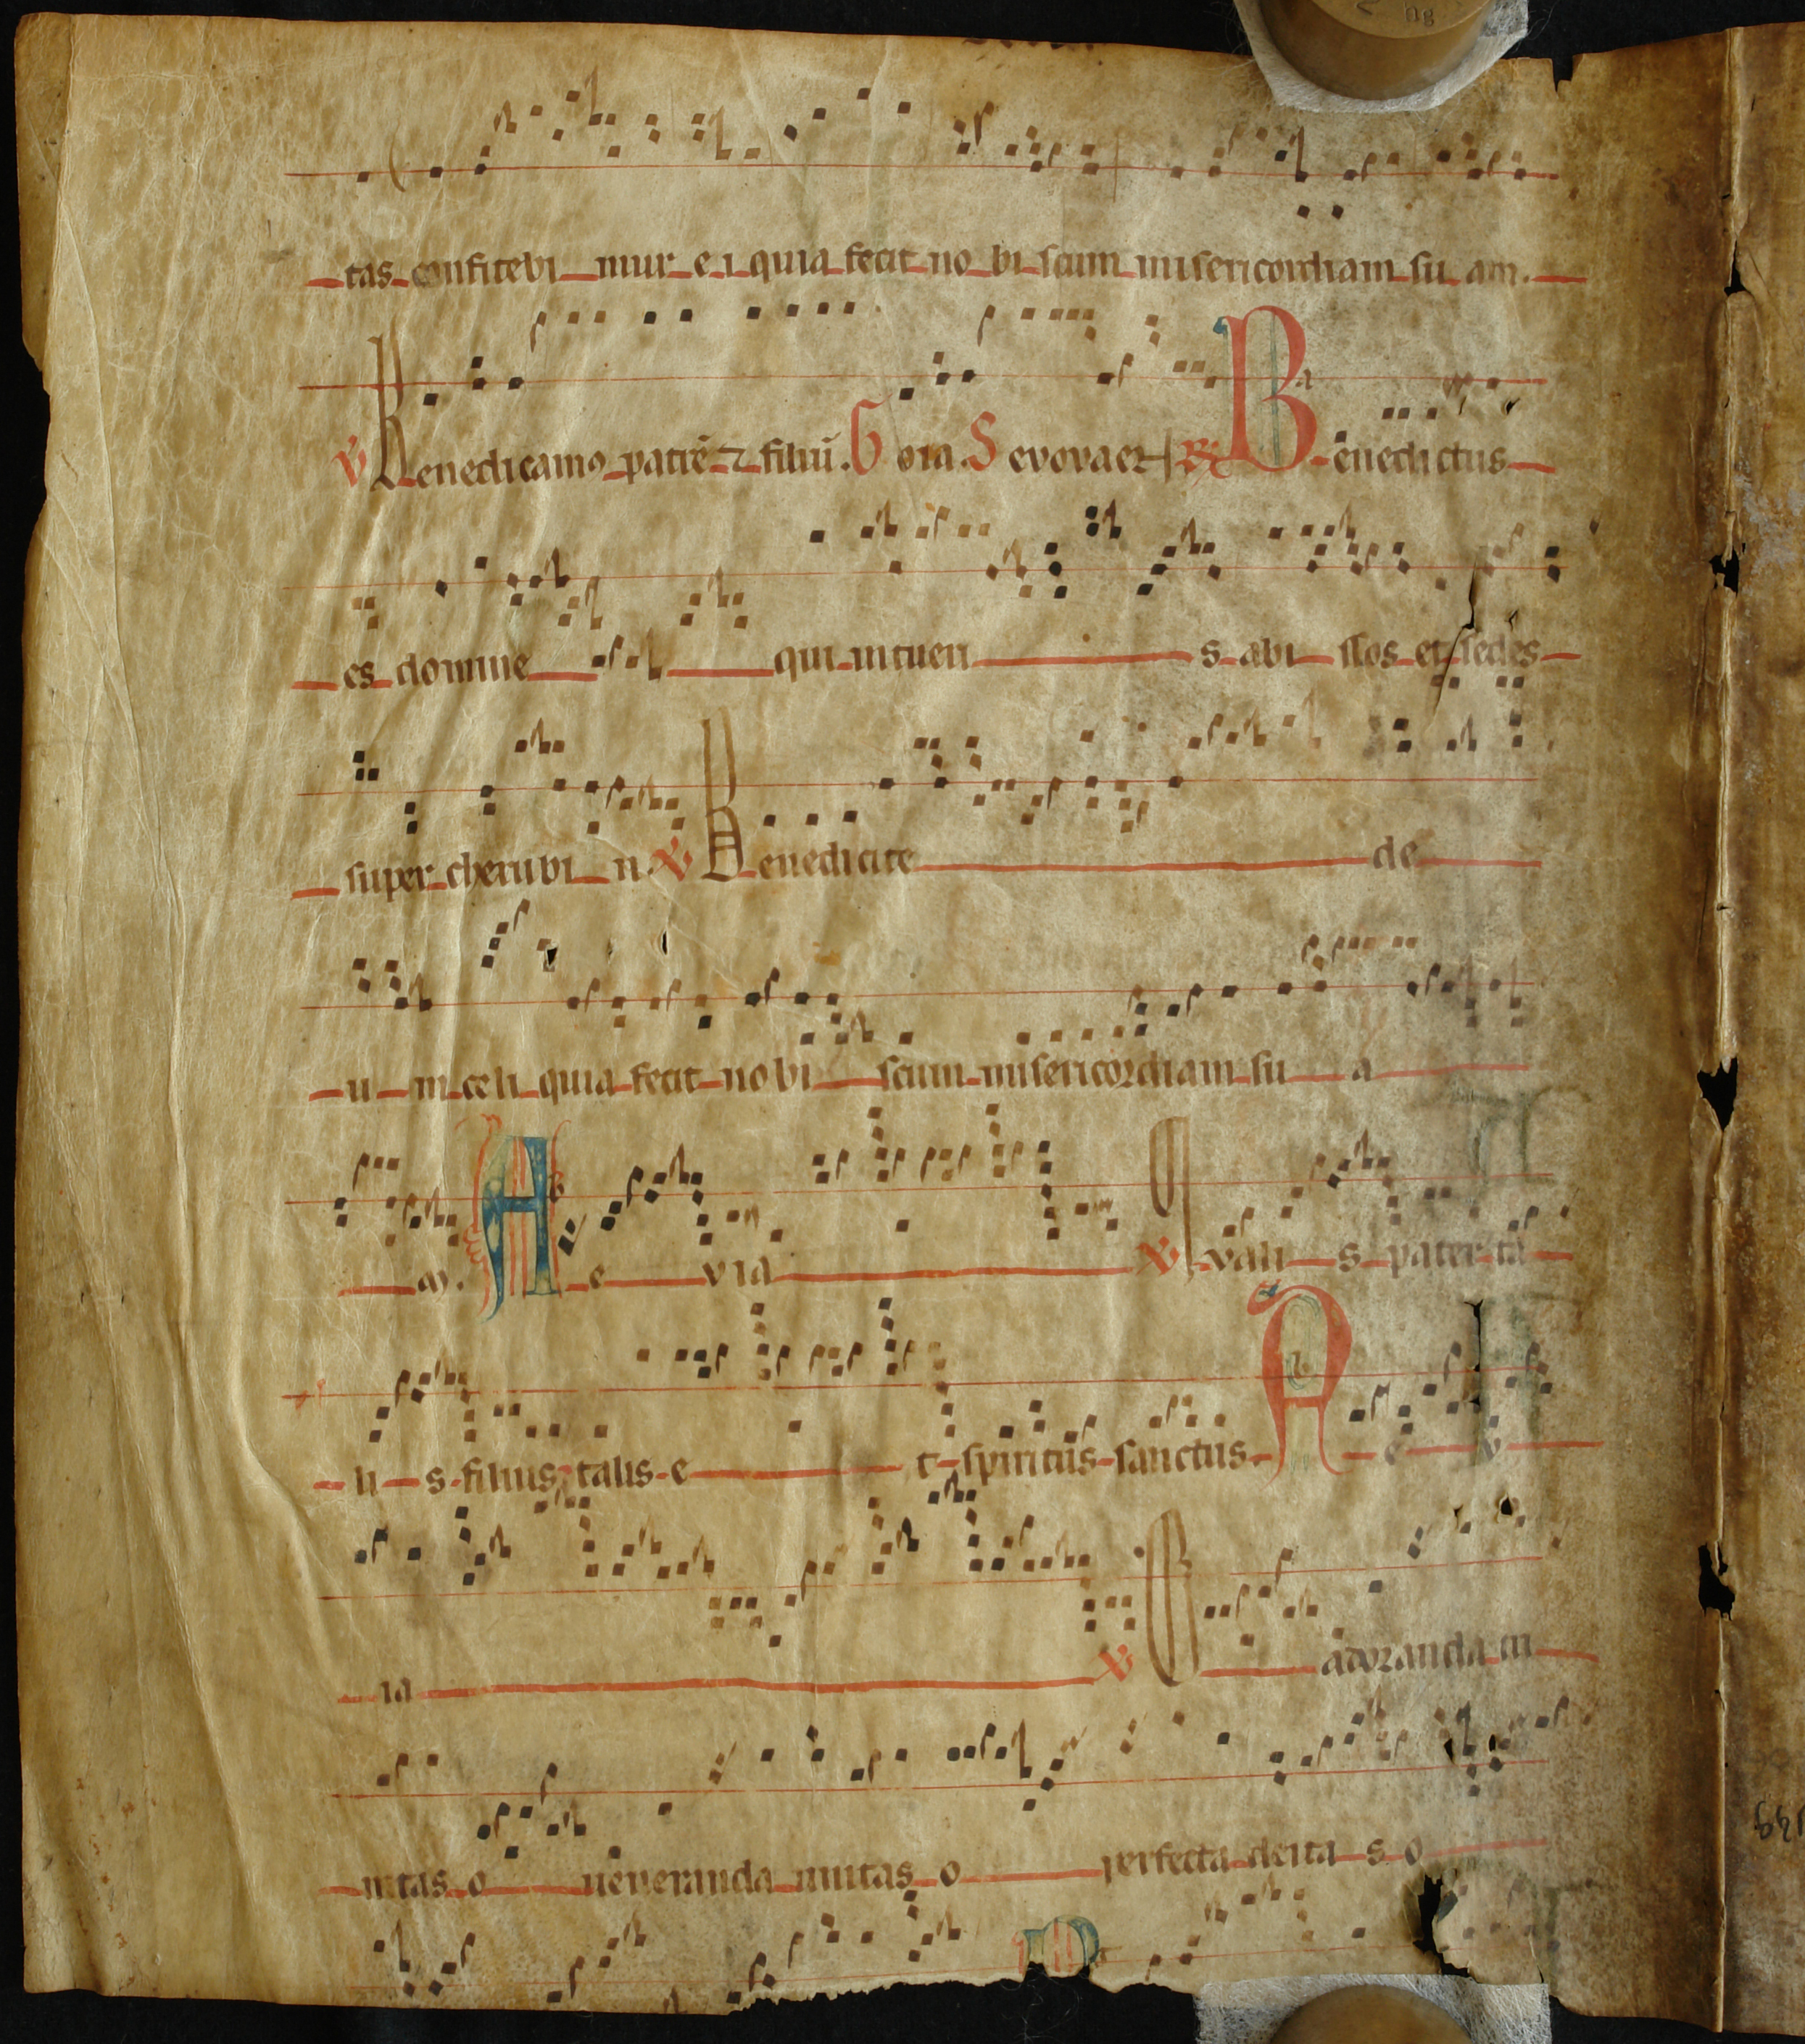 tas confitebi mur e i quia fecit no bi scum misericordiam su am.
℣ Benedicamꝰ patrē ⁊ filiū. G oia. S evovaet ℟ Benedictus
es domine qui intueri s abi ssos et sedes
super cherubi n. ℣ Benedicite de
u m celi quia fecit nobi scum misericordiam su a
m. A e via ℣ Qvali s pater ta
li s filius talis e t spiritus sanctus. A e v
ia ℣ O adoranda tri
nitas o veneranda unitas o perfecta deita s o